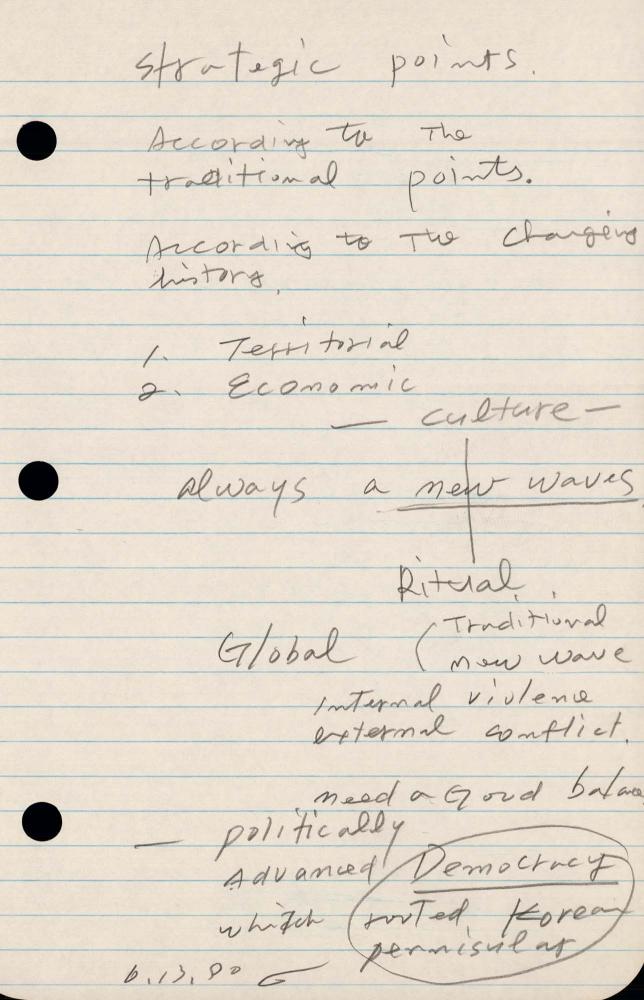 strategic points.
According to The
traditional points.
According to The changing
history.
1. Territorial
2. Economic
— culture —
always a new waves
Ritual
Global ( Traditional
new wave
internal violence
external conflict.
need a Good balance
— politically
Advanced Democracy
which rooted Korean
pennisular
6.13.80